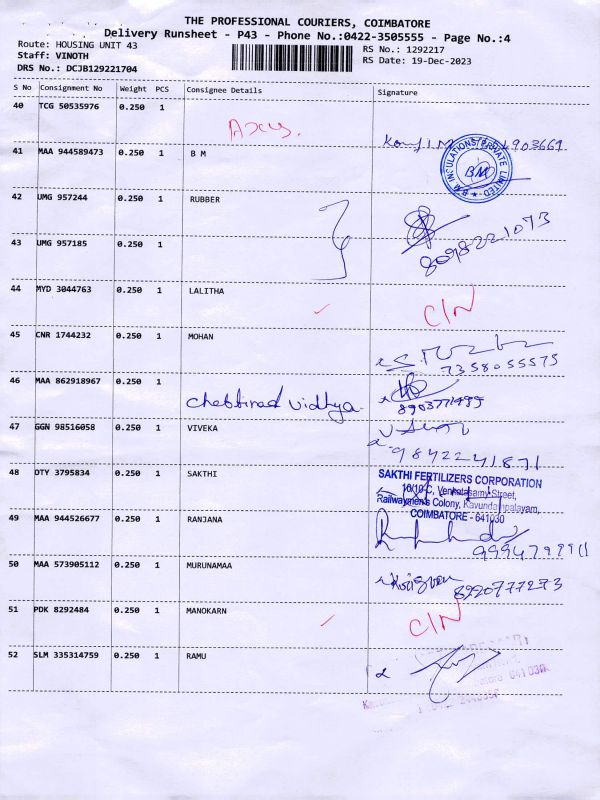 THE PROFESSIONAL COURIERS, COIMBATORE
Delivery Runsheet - P43 - Phone No.:0422-3505555 - Page No.:4
Route: HOUSING UNIT 43
RS No.: 1292217
Staff: VINOTH
RS Date: 19-Dec-2023
DRS No.: DCJB129221704
S No Consignment No Weight PCS Consignee Details Signature
40 TCG 50535976 0.250 1
Axis.
41 MAA 944589473 0.250 1 B M
B.M INCULATIONS PRIVATE LIMITED
BM
42 UMG 957244 0.250 1 RUBBER
43 UMG 957185 0.250 1
8098221073
44 MYD 3044763 0.250 1 LALITHA
C/N
45 CNR 1744232 0.250 1 MOHAN
7358055575
46 MAA 862918967 0.250 1
Chettinad vidhya
47 GGN 98516058 0.250 1 VIVEKA
9842241871
48 OTY 3795834 0.250 1 SAKTHI
SAKTHI FERTILIZERS CORPORATION
16/10-C, Venkatasamy Street,
Railwaymen's Colony, Kavundampalayam,
COIMBATORE - 641030
49 MAA 944526677 0.250 1 RANJANA
50 MAA 573905112 0.250 1 MURUNAMAA
8220777273
51 PDK 8292484 0.250 1 MANOKARN
C/N
52 SLM 335314759 0.250 1 RAMU